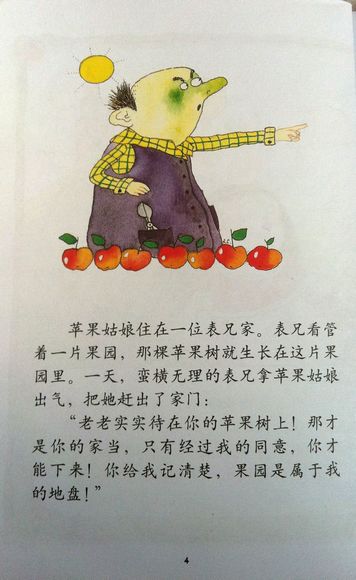 苹果姑娘住在一位表兄家。表兄看管
着一片果园，那棵苹果树就生长在这片果
园里。一天，蛮横无理的表兄拿苹果姑娘
出气，把她赶出了家门：
“老老实实待在你的苹果树上！那才
是你的家当，只有经过我的同意，你才
能下来！你给我记清楚，果园是属于我
的地盘！”
4